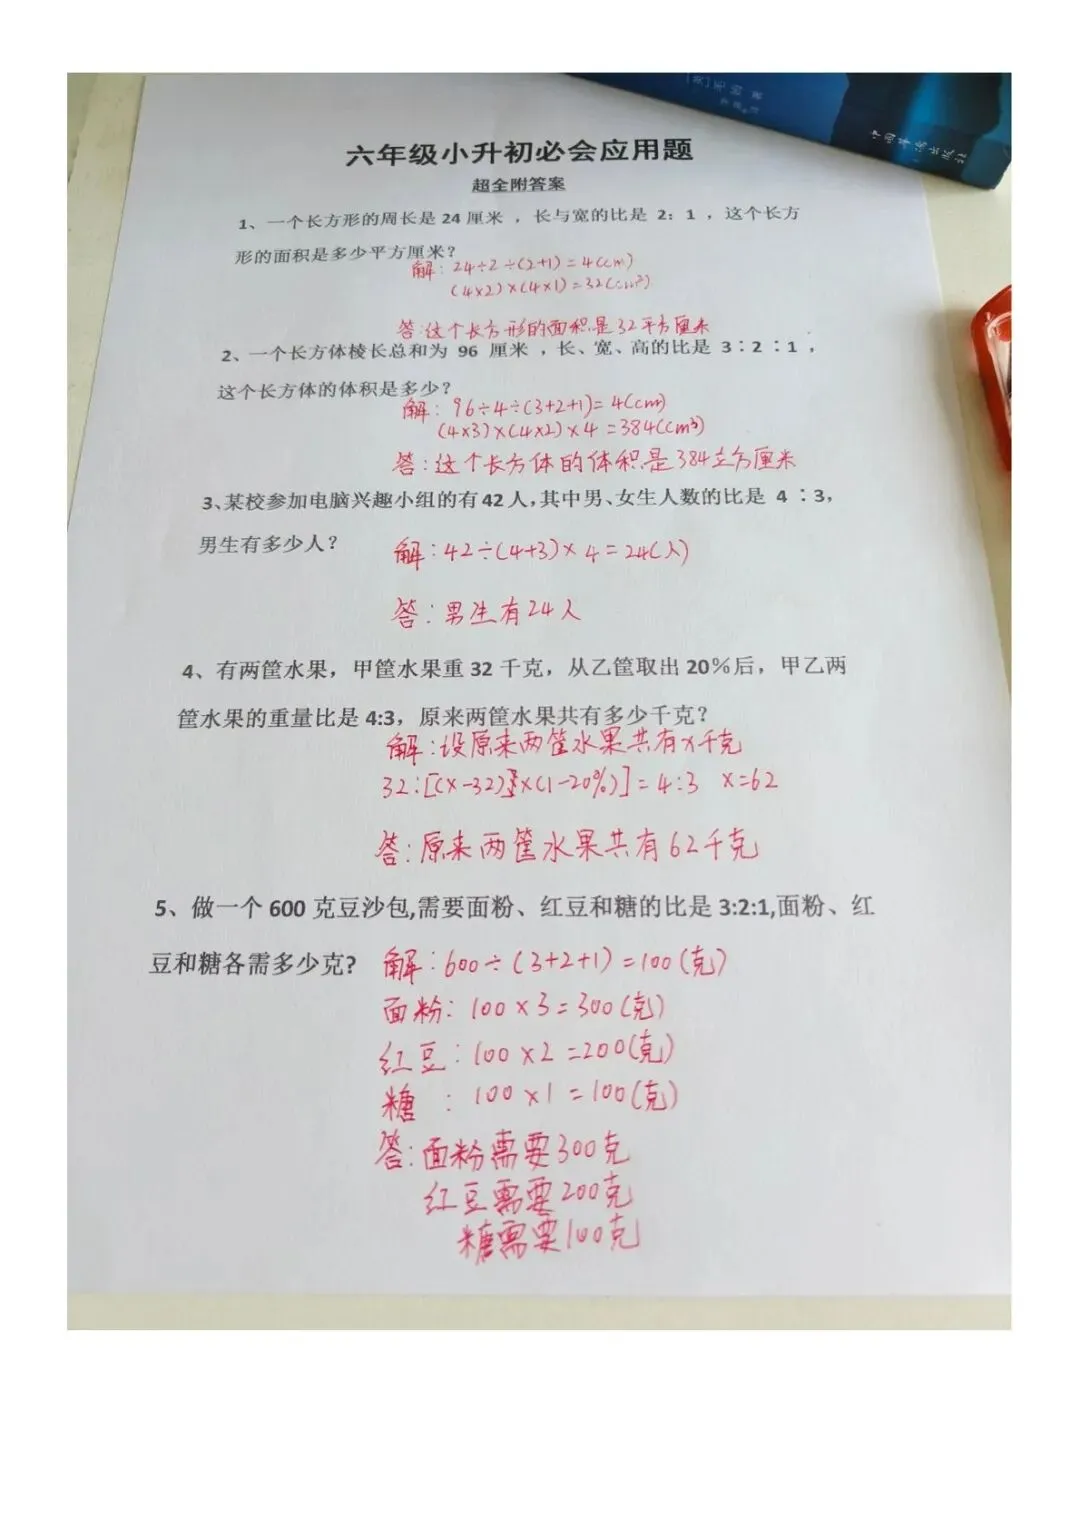 中国华侨出版社
六年级小升初必会应用题
超全附答案
1、一个长方形的周长是 24 厘米 ，长与宽的比是 2：1 ，这个长方
形的面积是多少平方厘米？
解：24÷2÷(2+1)=4(cm)
(4×2)×(4×1)=32(cm²)
答：这个长方形的面积是32平方厘米
2、一个长方体棱长总和为 96 厘米 ，长、宽、高的比是 3∶2 ∶1 ，
这个长方体的体积是多少？
解：96÷4÷(3+2+1)=4(cm)
(4×3)×(4×2)×4=384(cm³)
答：这个长方体的体积是384立方厘米
3、某校参加电脑兴趣小组的有42人，其中男、女生人数的比是 4 ∶3，
男生有多少人？
解：42÷(4+3)×4=24(人)
答：男生有24人
4、有两筐水果，甲筐水果重 32 千克，从乙筐取出 20%后，甲乙两
筐水果的重量比是 4:3，原来两筐水果共有多少千克？
解：设原来两筐水果共有x千克
32:[(x-32)×(1-20%)]=4:3 x=62
答：原来两筐水果共有62千克
5、做一个 600 克豆沙包,需要面粉、红豆和糖的比是 3:2:1,面粉、红
豆和糖各需多少克?
解：600÷(3+2+1)=100(克)
面粉：100×3=300(克)
红豆：100×2=200(克)
糖：100×1=100(克)
答：面粉需要300克
红豆需要200克
糖需要100克